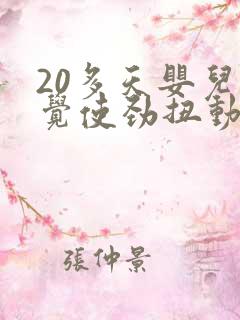 20多天嬰兒
覺使勁扭動
張仲景